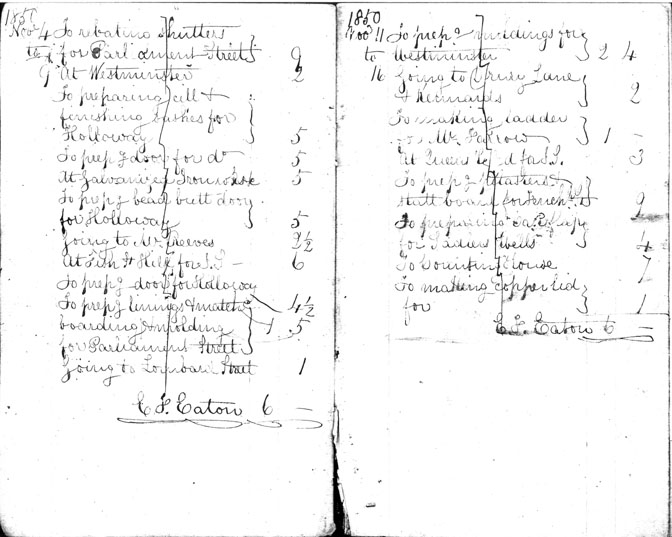 1850
Nov 4 To rebating Shutters
to for Parliament Street 9
9 At Westminster 2
To preparing cill &
finishing sashes for
Holloway 5
To prepg door for do 5
At Galvanized Ironworks 5
To prep bead butt door
for Holloway 5
going to Mr Reeves 2½
At Fish St Hill for S.S – 6
To prepg door for Holloway
To prepg linings & match 4½
boarding & molding 1 5
for Parliament Street
Going to Lombard Street 1
C F Eaton 6 –
1850
Nov 11 To prepg mouldings for
to Westminster 2 4
16 Going to Drury Lane
& 2
To making ladder
for Mr 1 –
At Queens Head for S.S. 3
To prepg &
skirt board for 9
To preparing
for Sadlers Wells 4
To Counting House 7
To making copper lid
for 1
C F Eaton 6 –